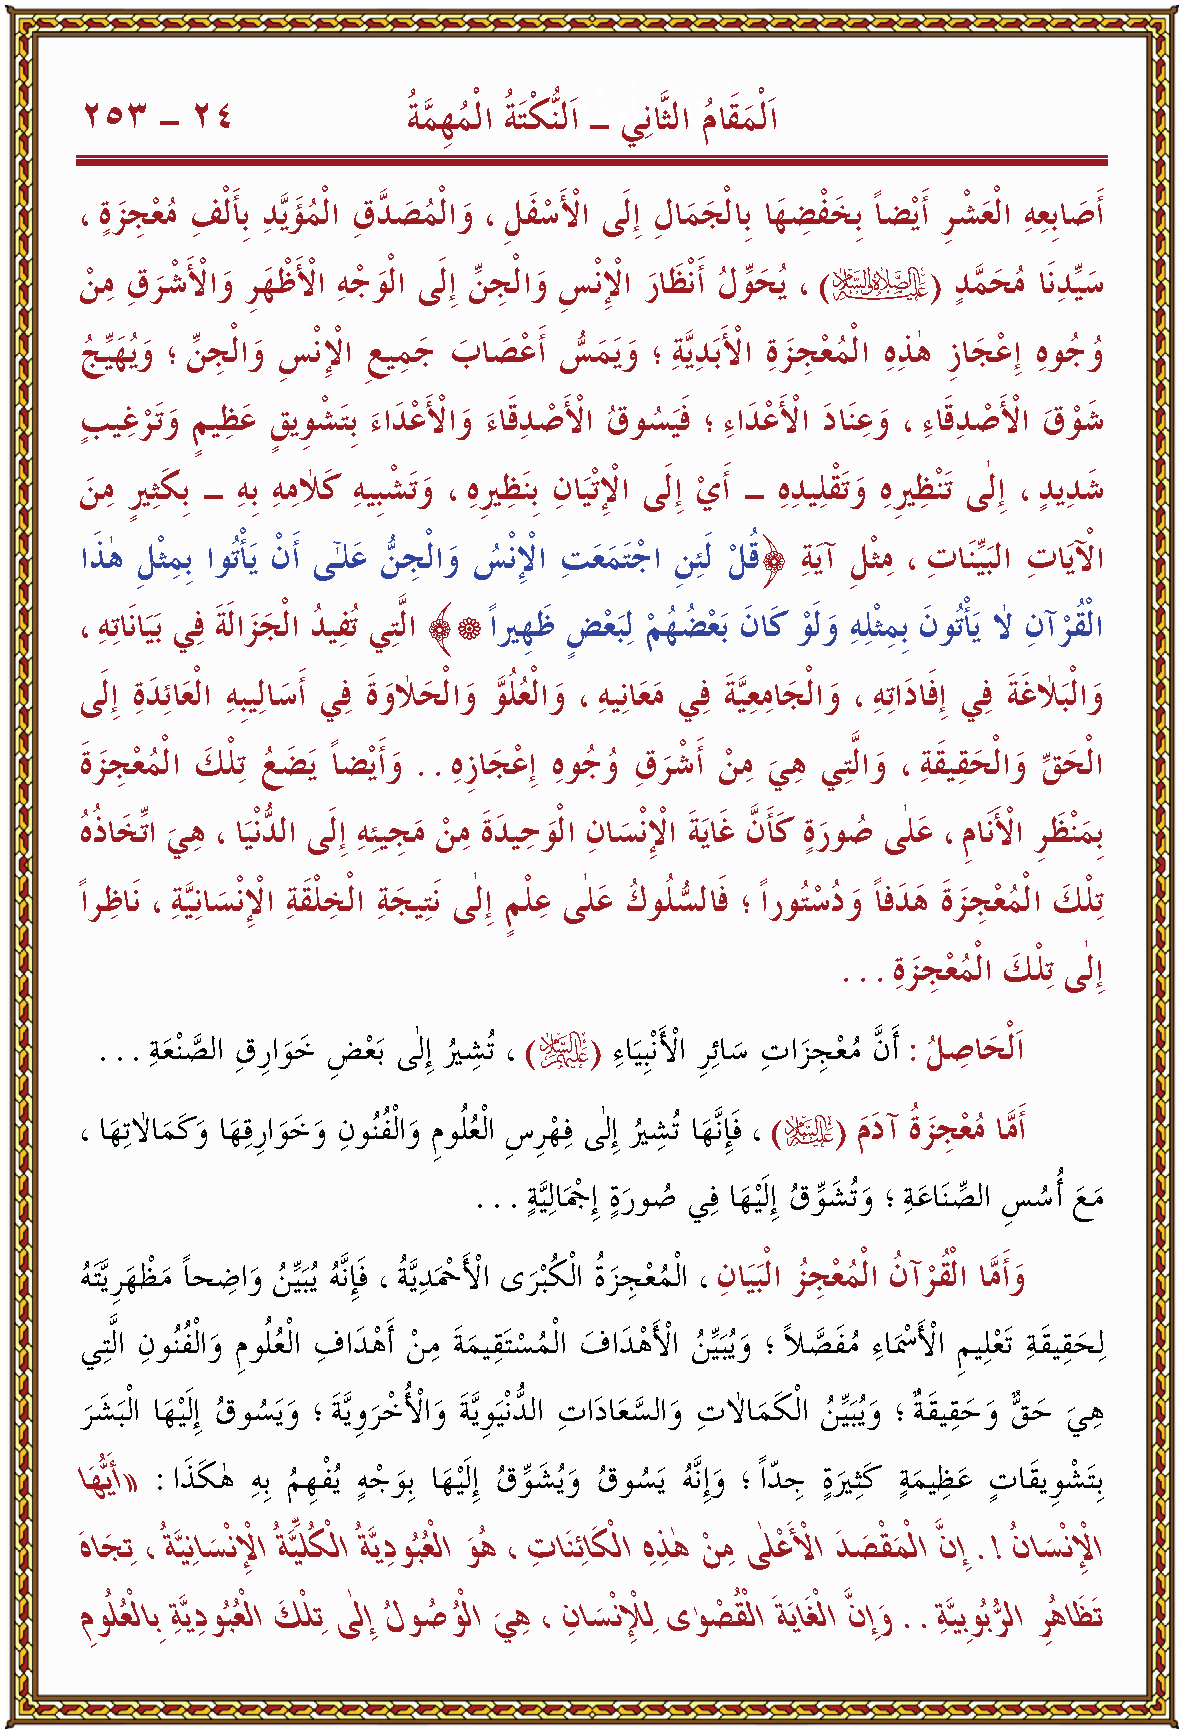 اَلْمَقَامُ الثَّانِي – اَلنُّكْتَةُ الْمُهِمَّةُ ٢٤ – ٢٥٣
أَصَابِعِهِ الْعَشْرِ أَيْضاً بِخَفْضِهَا بِالْجَمَالِ إِلَى الْأَسْفَلِ ، وَالْمُصَدَّقِ الْمُؤَيَّدِ بِأَلْفِ مُعْجِزَةٍ ،
سَيِّدِنَا مُحَمَّدٍ (عَلَيْهِ الصَّلَاةُ وَالسَّلَامُ) ، يُحَوِّلُ أَنْظَارَ الْإِنْسِ وَالْجِنِّ إِلَى الْوَجْهِ الْأَظْهَرِ وَالْأَشْرَقِ مِنْ
وُجُوهِ إِعْجَازِ هٰذِهِ الْمُعْجِزَةِ الْأَبَدِيَّةِ ؛ وَيَمَسُّ أَعْصَابَ جَمِيعِ الْإِنْسِ وَالْجِنِّ ؛ وَيُهَيِّجُ
شَوْقَ الْأَصْدِقَاءِ ، وَعِنَادَ الْأَعْدَاءِ ؛ فَيَسُوقُ الْأَصْدِقَاءَ وَالْأَعْدَاءَ بِتَشْوِيقٍ عَظِيمٍ وَتَرْغِيبٍ
شَدِيدٍ ، إِلٰى تَنْظِيرِهِ وَتَقْلِيدِهِ – أَيْ إِلَى الْإِتْيَانِ بِنَظِيرِهِ ، وَتَشْبِيهِ كَلَامِهِ بِهِ – بِكَثِيرٍ مِنَ
الْآيَاتِ الْبَيِّنَاتِ ، مِثْلِ آيَةِ ﴿قُلْ لَئِنِ اجْتَمَعَتِ الْإِنْسُ وَالْجِنُّ عَلٰٓى أَنْ يَأْتُوا بِمِثْلِ هٰذَا
الْقُرْآنِ لَا يَأْتُونَ بِمِثْلِهِ وَلَوْ كَانَ بَعْضُهُمْ لِبَعْضٍ ظَهِيراً ۞ ﴾ الَّتِي تُفِيدُ الْجَزَالَةَ فِي بَيَانَاتِهِ ،
وَالْبَلَاغَةَ فِي إِفَادَاتِهِ ، وَالْجَامِعِيَّةَ فِي مَعَانِيهِ ، وَالْعُلُوَّ وَالْحَلَاوَةَ فِي أَسَالِيبِهِ الْعَائِدَةِ إِلَى
الْحَقِّ وَالْحَقِيقَةِ ، وَالَّتِي هِيَ مِنْ أَشْرَقِ وُجُوهِ إِعْجَازِهِ . . وَأَيْضاً يَضَعُ تِلْكَ الْمُعْجِزَةَ
بِمَنْظَرِ الْأَنَامِ ، عَلٰى صُورَةٍ كَأَنَّ غَايَةَ الْإِنْسَانِ الْوَحِيدَةَ مِنْ مَجِيئِهِ إِلَى الدُّنْيَا ، هِيَ اتِّخَاذُهُ
تِلْكَ الْمُعْجِزَةَ هَدَفاً وَدُسْتُوراً ؛ فَالسُّلُوكُ عَلٰى عِلْمٍ إِلٰى نَتِيجَةِ الْخِلْقَةِ الْإِنْسَانِيَّةِ ، نَاظِراً
إِلٰى تِلْكَ الْمُعْجِزَةِ . . .
اَلْحَاصِلُ : أَنَّ مُعْجِزَاتِ سَائِرِ الْأَنْبِيَاءِ (عَلَيْهِمُ السَّلَامُ) ، تُشِيرُ إِلٰى بَعْضِ خَوَارِقِ الصَّنْعَةِ . . .
أَمَّا مُعْجِزَةُ آدَمَ (عَلَيْهِ السَّلَامُ) ، فَإِنَّهَا تُشِيرُ إِلٰى فِهْرِسِ الْعُلُومِ وَالْفُنُونِ وَخَوَارِقِهَا وَكَمَالَاتِهَا ،
مَعَ أُسُسِ الصِّنَاعَةِ ؛ وَتُشَوِّقُ إِلَيْهَا فِي صُورَةٍ إِجْمَالِيَّةٍ . . .
وَأَمَّا الْقُرْآنُ الْمُعْجِزُ الْبَيَانِ ، الْمُعْجِزَةُ الْكُبْرَى الْأَحْمَدِيَّةُ ، فَإِنَّهُ يُبَيِّنُ وَاضِحاً مَظْهَرِيَّتَهُ
لِحَقِيقَةِ تَعْلِيمِ الْأَسْمَاءِ مُفَصَّلاً ؛ وَيُبَيِّنُ الْأَهْدَافَ الْمُسْتَقِيمَةَ مِنْ أَهْدَافِ الْعُلُومِ وَالْفُنُونِ الَّتِي
هِيَ حَقٌّ وَحَقِيقَةٌ ؛ وَيُبَيِّنُ الْكَمَالَاتِ وَالسَّعَادَاتِ الدُّنْيَوِيَّةَ وَالْأُخْرَوِيَّةَ ؛ وَيَسُوقُ إِلَيْهَا الْبَشَرَ
بِتَشْوِيقَاتٍ عَظِيمَةٍ كَثِيرَةٍ جِدّاً ؛ وَإِنَّهُ يَسُوقُ وَيُشَوِّقُ إِلَيْهَا بِوَجْهٍ يُفْهِمُ بِهِ هٰكَذَا : «أَيُّهَا
الْإِنْسَانُ ! . إِنَّ الْمَقْصَدَ الْأَعْلٰى مِنْ هٰذِهِ الْكَائِنَاتِ ، هُوَ الْعُبُودِيَّةُ الْكُلِّيَّةُ الْإِنْسَانِيَّةُ ، تِجَاهَ
تَظَاهُرِ الرُّبُوبِيَّةِ . . وَإِنَّ الْغَايَةَ الْقُصْوٰى لِلْإِنْسَانِ ، هِيَ الْوُصُولُ إِلٰى تِلْكَ الْعُبُودِيَّةِ بِالْعُلُومِ